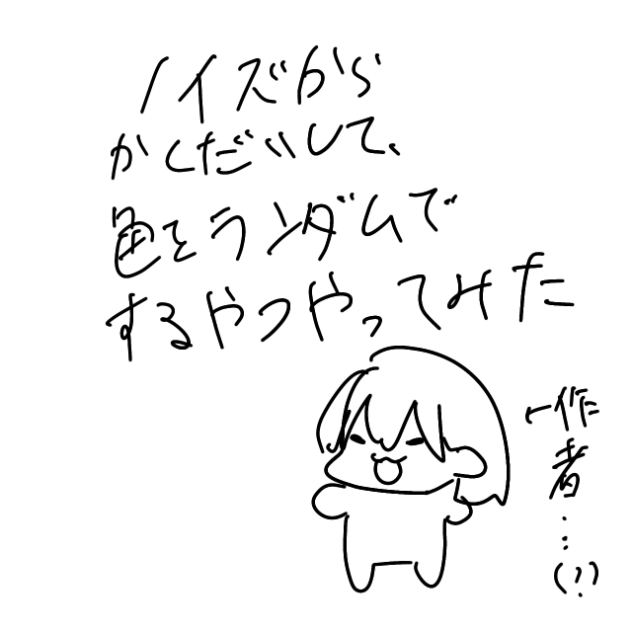 ノイズから
かくだいして、
色をランダムで
するやつやってみた
←作者…(?)